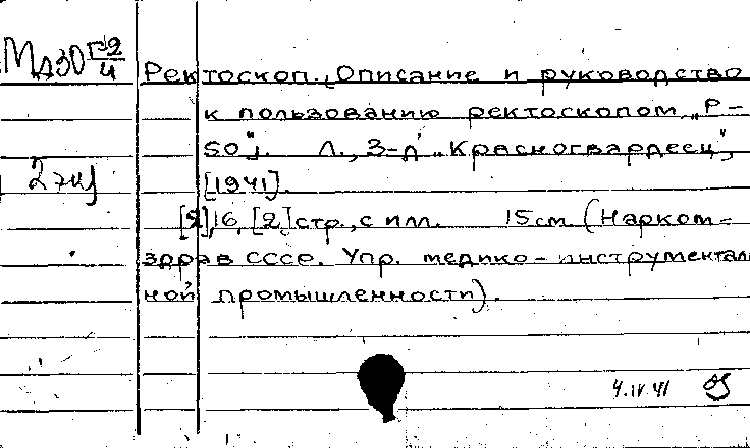 Ректоскоп. Описание и руководство
к пользованию ректоскопом „Р-
50". Л., З-д „Красногвардеец",
[1941].
16, [2] стр., с илл. 15 см. (Нарком-
здрав СССР. Упр. медико-инструменталь
ной промышленности).
4.IV.41